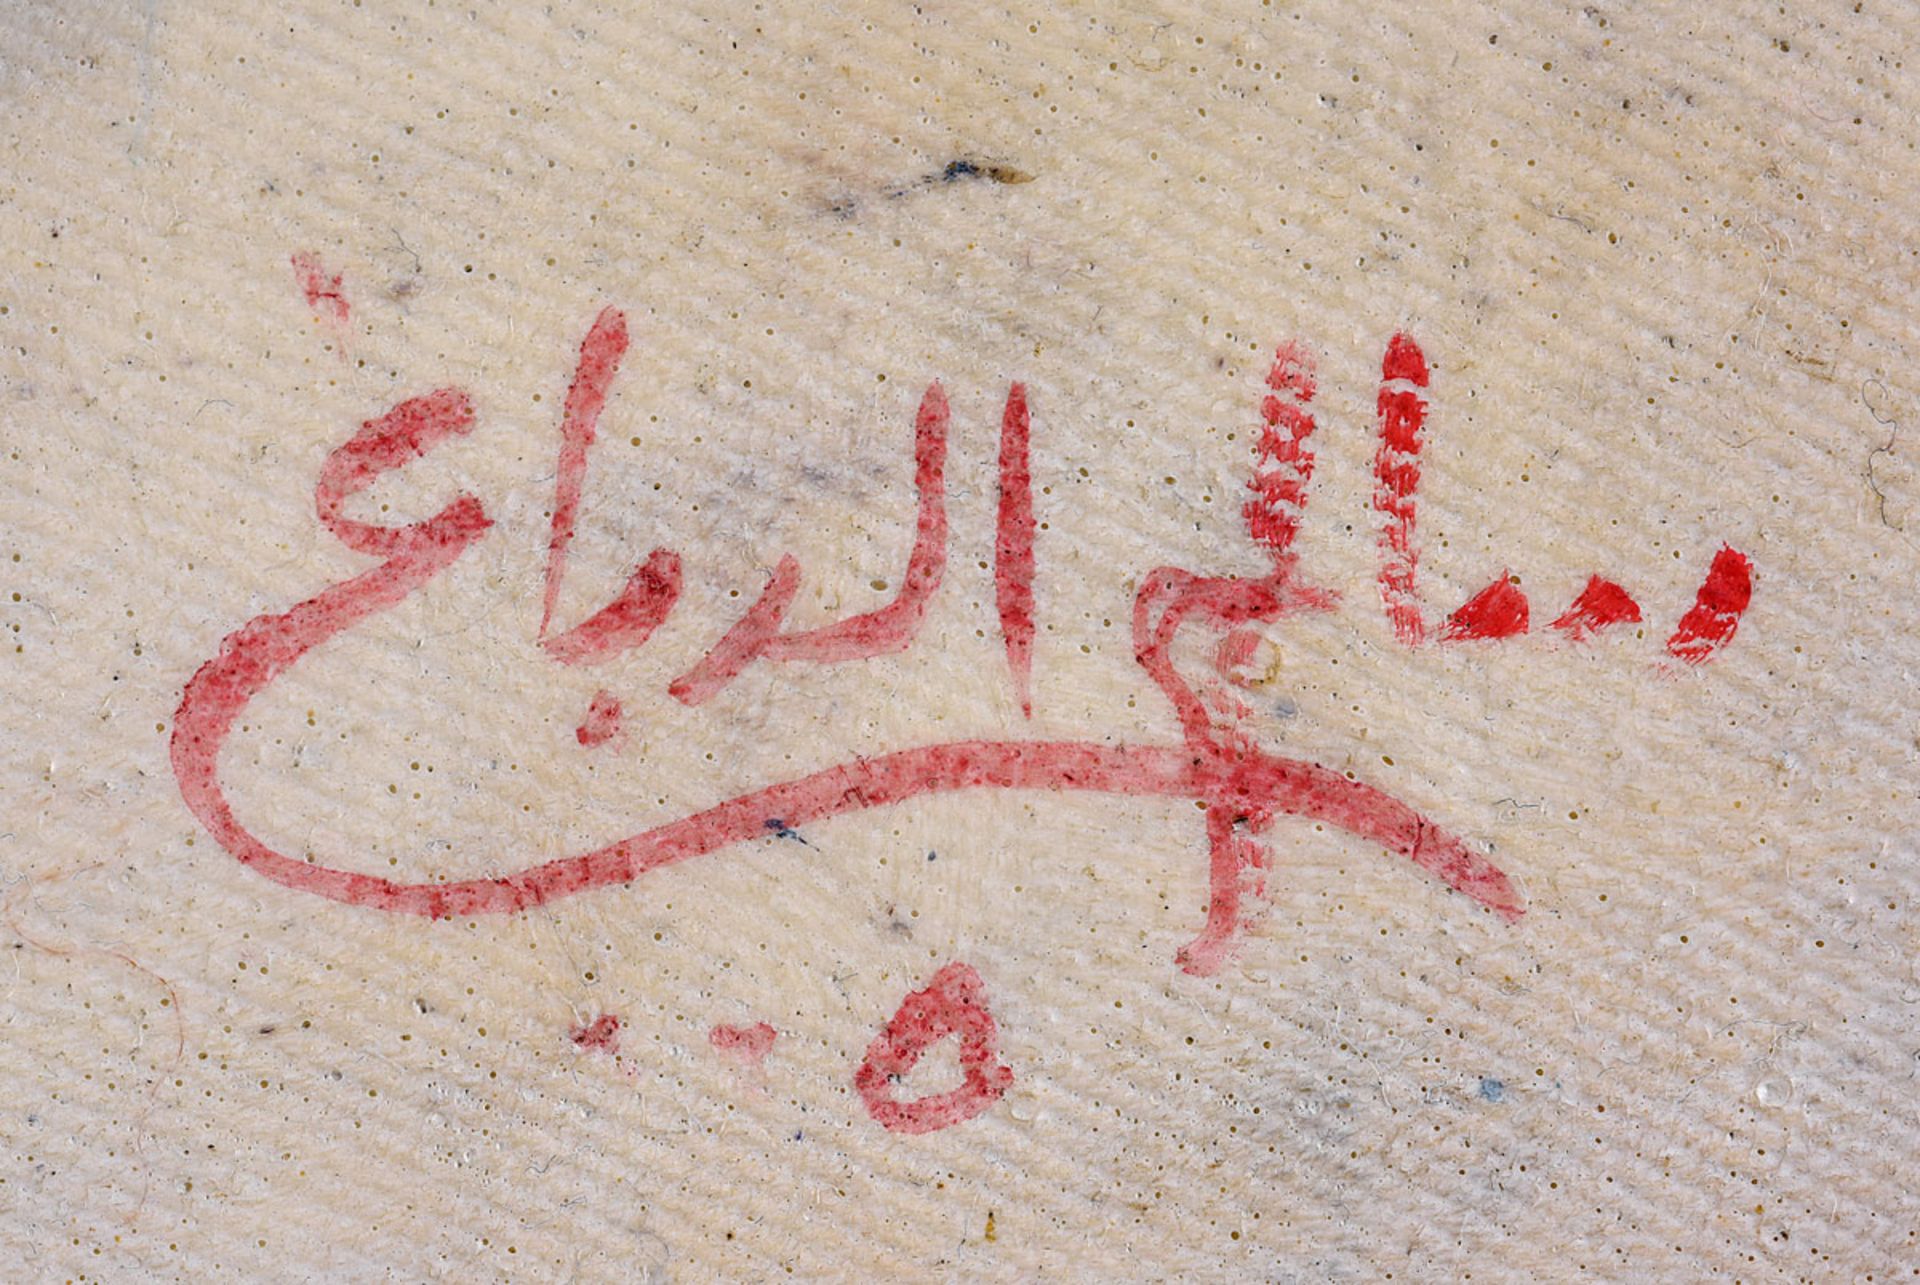 سالم الدباغ
٠٠٥